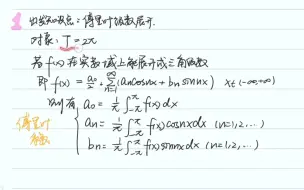 1 出发的观点：傅里叶级数展开.
对象：T=2π
若f(x)在实数域上能展开成三角函数
即 f(x) = a₀/2 + ∑_{n=1}^{∞} (aₙcosnx + bₙsinnx) x∈(-∞,+∞)
则有 a₀ = 1/π ∫_{-π}^{π} f(x)dx
傅里叶 系数
aₙ = 1/π ∫_{-π}^{π} f(x)cosnxdx (n=1,2,…)
bₙ = 1/π ∫_{-π}^{π} f(x)sinnxdx (n=1,2,…)